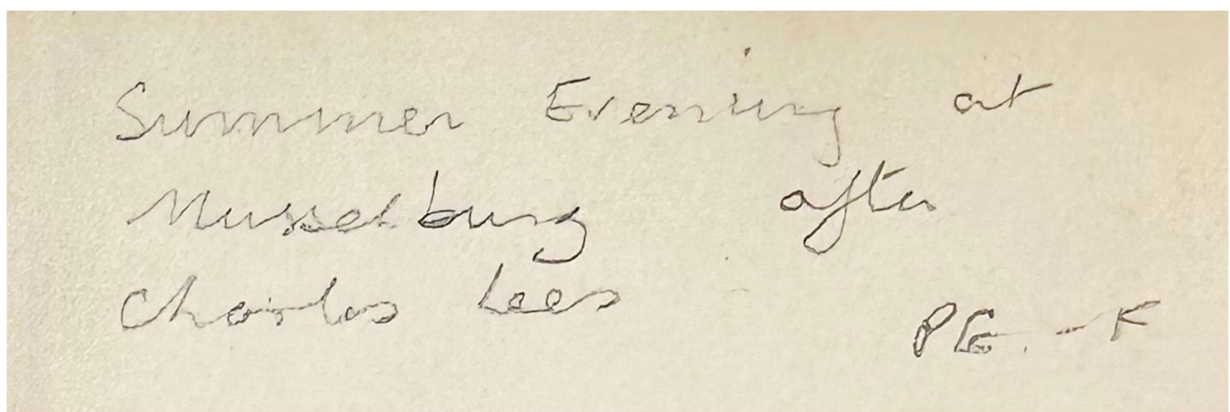 Summer Evening at
Musselburg after
Charles Lees
PG. - F